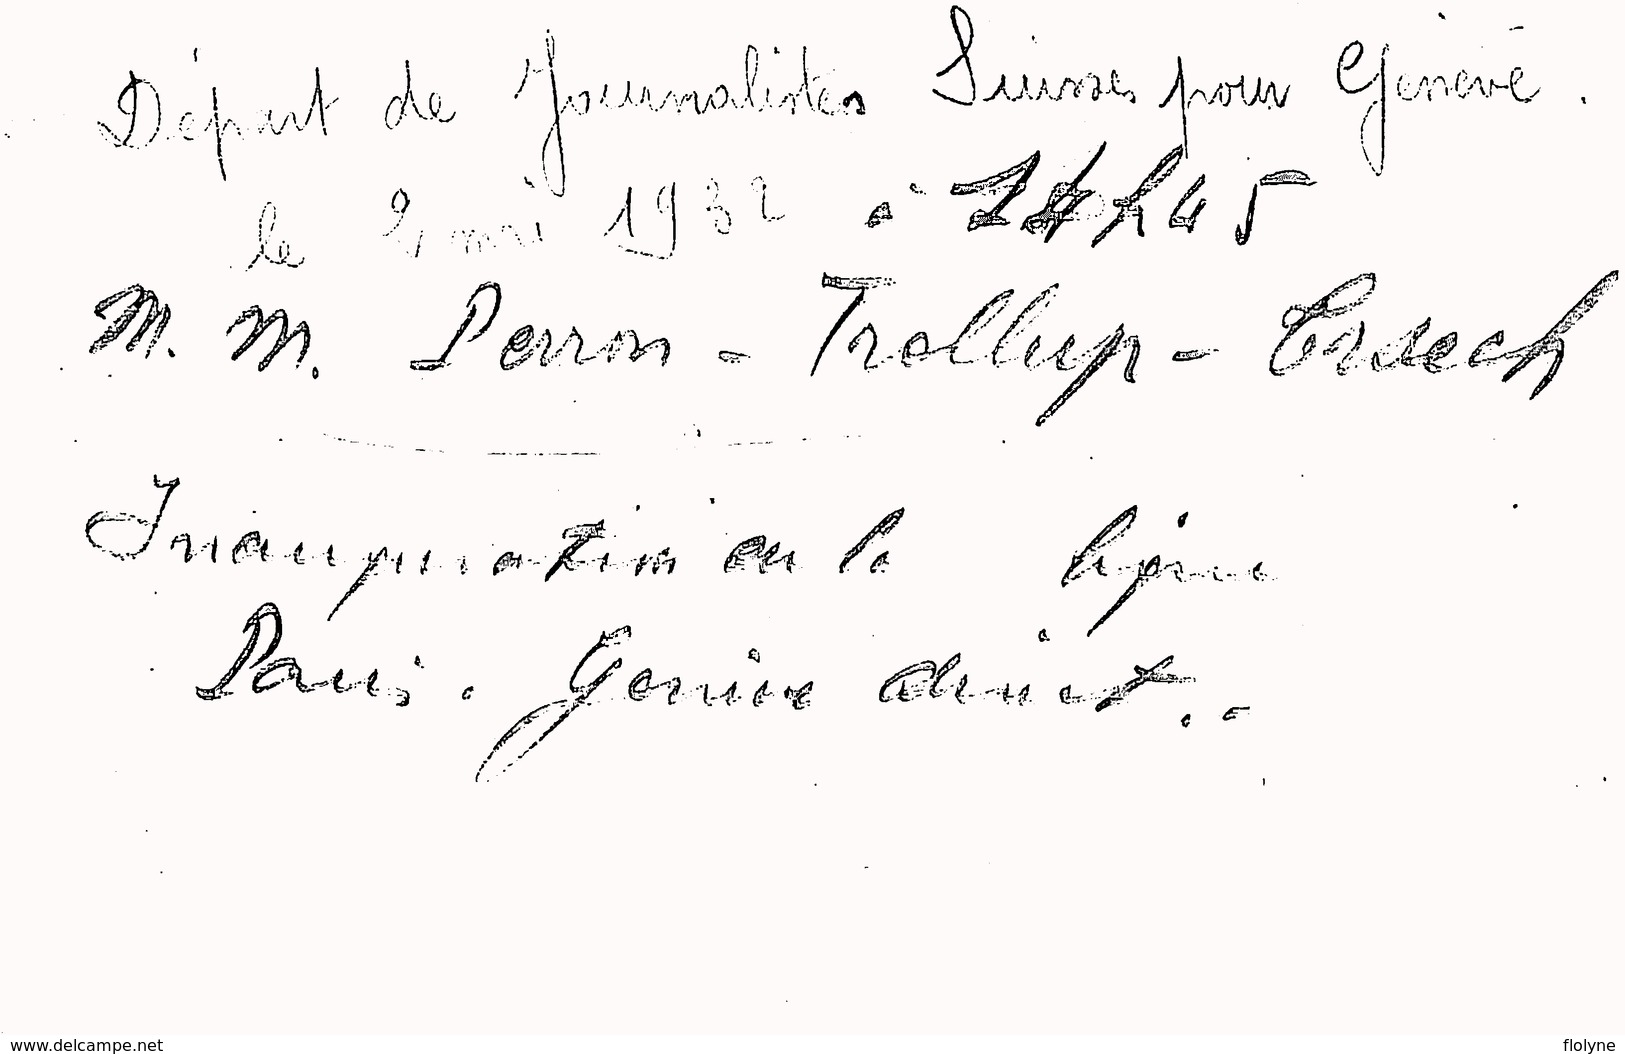 Départ de Journalistes Suisses pour Genève.
le 2 mai 1932 à h 45
M. M. Perron - Trollup -
Inauguration de la ligne
Paris. Genève direct. -
www.delcampe.net
flolyne